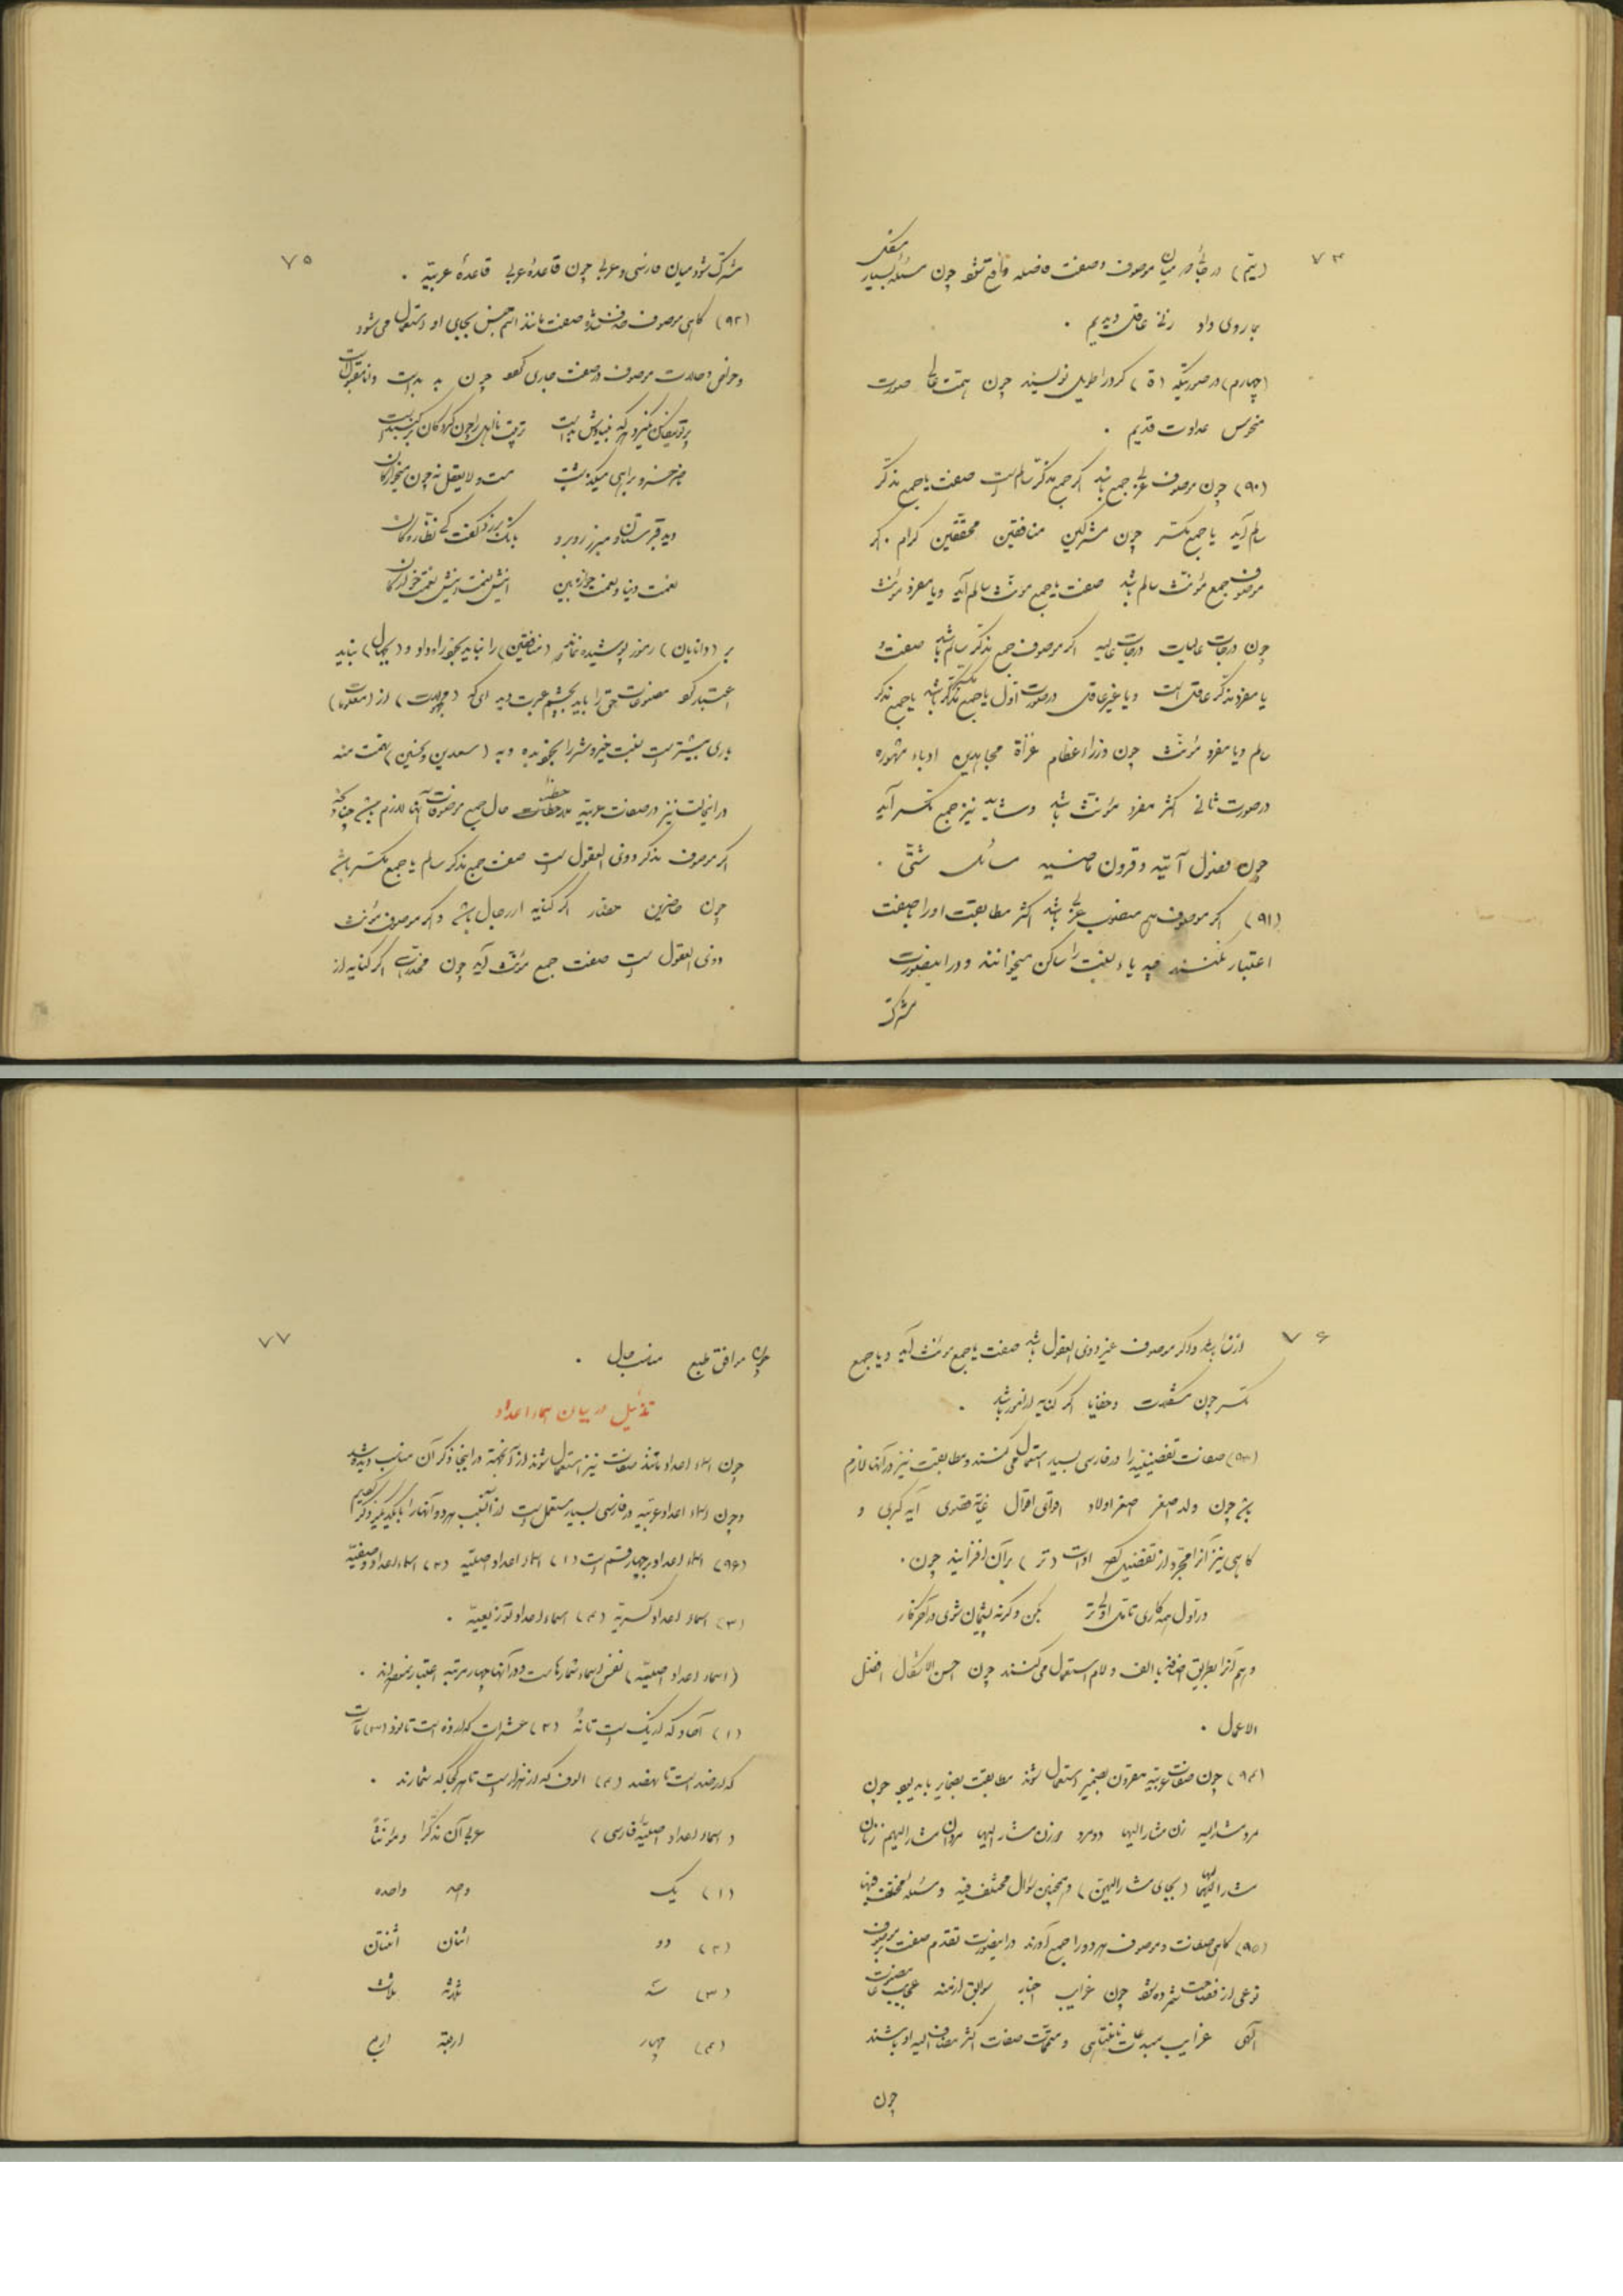 ۷۴
(یتم) در جائی در میان موصوف و صفت فاصله واقع شود چون مسئله بسیار مشکلی
بما روی داد زنی عاقل دیدیم .
(چهارم) در صورتیکه (ة) گرد را طویل نویسند چون همت عالی صورت
منحوس عداوت قدیم .
(۹۰) چون موصوف عربی جمع باشد اگر جمع مذکر سالم است صفت یا جمع مذکر
سالم آید یا جمع مکسر چون مشرکین منافقین محققین کرام . اگر
موصوف جمع مؤنث سالم باشد صفت یا جمع مؤنث سالم آید و یا مفرد مؤنث
چون درجات عالیات درجات عالیه اگر موصوف جمع مذکر سالم باشد صفت او
یا مفرد مذکر عاقل است و یا غیر عاقل در صورت اول یا جمع مکسر مذکر باشد یا جمع مذکر
سالم و یا مفرد مؤنث چون وزراء عظام غزاة مجاهدین ادباء مشهوره
در صورت ثانی اکثر مفرد مؤنث باشد و شاید نیز جمع مکسر آید
چون فصول آتیه و قرون ماضیه مسائل شتی .
(۹۱) اگر موصوف اسم منصوب عربی باشد اکثر مطابقت او را بصفت
اعتبار نکنند چه یاء نسبت را ساکن میخوانند و در اینصورت
مشترک
۷۵
مشترک شود میان فارسی و عربی چون قاعدهٔ عربی قاعدهٔ عربیّه .
(۹۲) گاهی موصوف حذف شده صفت مانند اسم جنس بجای او استعمال می‌شود
و خواص و حالات موصوف در صفت جاری گردد چون
پرتو نیکان نگیرد هر که بنیادش بد است تربیت نااهل را چون گردکان بر گنبد است
دید قبرستان و مبرز روبرو بانگ برزد گفت کی نظارگان
نعمت دنیا و نعمت خواره بین اینش نعمت اینش نعمت خوارگان
بر (دانایان) رموز پوشیده نماند (منافقین) را نباید بخود راه داد و (بجهال) نباید
اعتبار کرد مصنوعات حق را باید بچشم عبرت دید ای که (مجهولات) از (معلومات)
در اینحالت نیز در صفات عربیّه ملاحظهٔ حال جمع موصوفات آنها لازم است چنانکه
اگر موصوف مذکر ذوی العقول است صفت جمع مذکر سالم یا جمع مکسر باشد
چون حاضرین حضار اگر کنایه از رجال باشد و اگر موصوف مؤنث
ذوی العقول است صفت جمع مؤنث آید چون مخدرات اگر کنایه از
۷۶
از نساء باشد و اگر موصوف غیر ذوی العقول باشد صفت یا جمع مؤنث آید و یا جمع
مکسر چون مشکلات و خفایا اگر کنایه از امور باشد .
(۹۳) صفات تفضیلیه را در فارسی بسیار استعمال می‌کنند و مطابقت نیز در آنها لازم
نیست چون ولد اصغر اصغر اولاد اقوای اقوال غایة قصوی آیه کبری و
گاهی نیز آنرا مجرد از تفضیل کرده ادات (تر) بر آن افزایند چون .
در اول همه کاری تامل اولی تر بکن وگرنه پشیمان شوی در آخر کار
و هم آنرا بطریق اضافه با الف و لام استعمال می‌کنند چون احسن الاشکال افضل
الاعمال .
(۹۴) چون صفات عربیّه مقرون بضمیر استعمال شوند مطابقت بضمایر باید بود چون
مرد مشارالیه زن مشارالیها دو مرد و زن مشارالیهما مردان مشارالیهم زنان
مشارالیها (بجای مشارالیهن) و همچنین سؤال مختلف فیه و مسئله مختلف فیها
(۹۵) گاهی صفات و موصوف هر دو را جمع آورند در اینصورت تقدم صفت بر موصوف
نوعی از فصاحت شمرده شود چون غرایب اخبار سوابق ازمنه عجایب مصنوعات
الهی غرایب مبدعات نامتناهی و متممات صفات اکثر مضاف الیه او باشند
چون
۷۷
چون موافق طبع مناسب حال .
تذئیل در بیان اسماء اعداد
چون اسماء اعداد مانند صفات نیز استعمال شوند از آنجهت در اینجا ذکر آن مناسب دیده شد
و چون اسماء اعداد عربیّه در فارسی بسیار مستعمل است از آن سبب هر دو آنها را با یکدیگر ذکر کردیم
(۹۶) اسماء اعداد بر چهار قسم است (۱) اسماء اعداد اصلیّه (۲) اسماء اعداد وصفیّه
(۳) اسماء اعداد کسریّه (۴) اسماء اعداد توزیعیّه .
(اسماء اعداد اصلیّه) نفس اسماء شمارهاست و در آنها چهار مرتبه اعتبار نموده‌اند .
(۱) آحاد که از یک است تا نُه (۲) عشرات که از ده است تا نود (۳) مآت
که از صد است تا نهصد (۴) الوف که از هزار است تا هر کجا که شمارند .
(اسماء اعداد اصلیّهٔ فارسی) عربی آن مذکراً و مؤنثاً
(۱) یک واحد واحده
(۲) دو اثنان اثنتان
(۳) سه ثلاثة ثلاث
(۴) چهار اربعة اربع